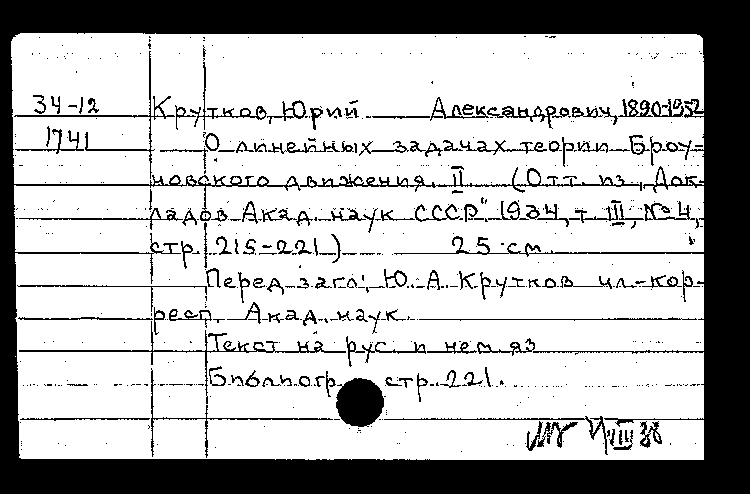 34-12 Крутков, Юрий Александрович, 1890-1952
1741 О линейных задачах теории Броу-
новского движения. II (Отт. из „Док-
ладов Акад. наук СССР". 1934, т. III, № 4,
стр. 215-221) 25 см.
Перед загл.: Ю. А. Крутков чл.-кор-
респ. Акад. наук.
Текст на рус. и нем. яз.
Библиогр. стр. 221.
VIII 38